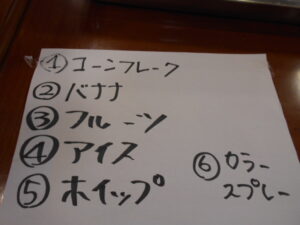 ① コーンフレーク
② バナナ
③ フルーツ
④ アイス
⑤ ホイップ
⑥ カラー
スプレー